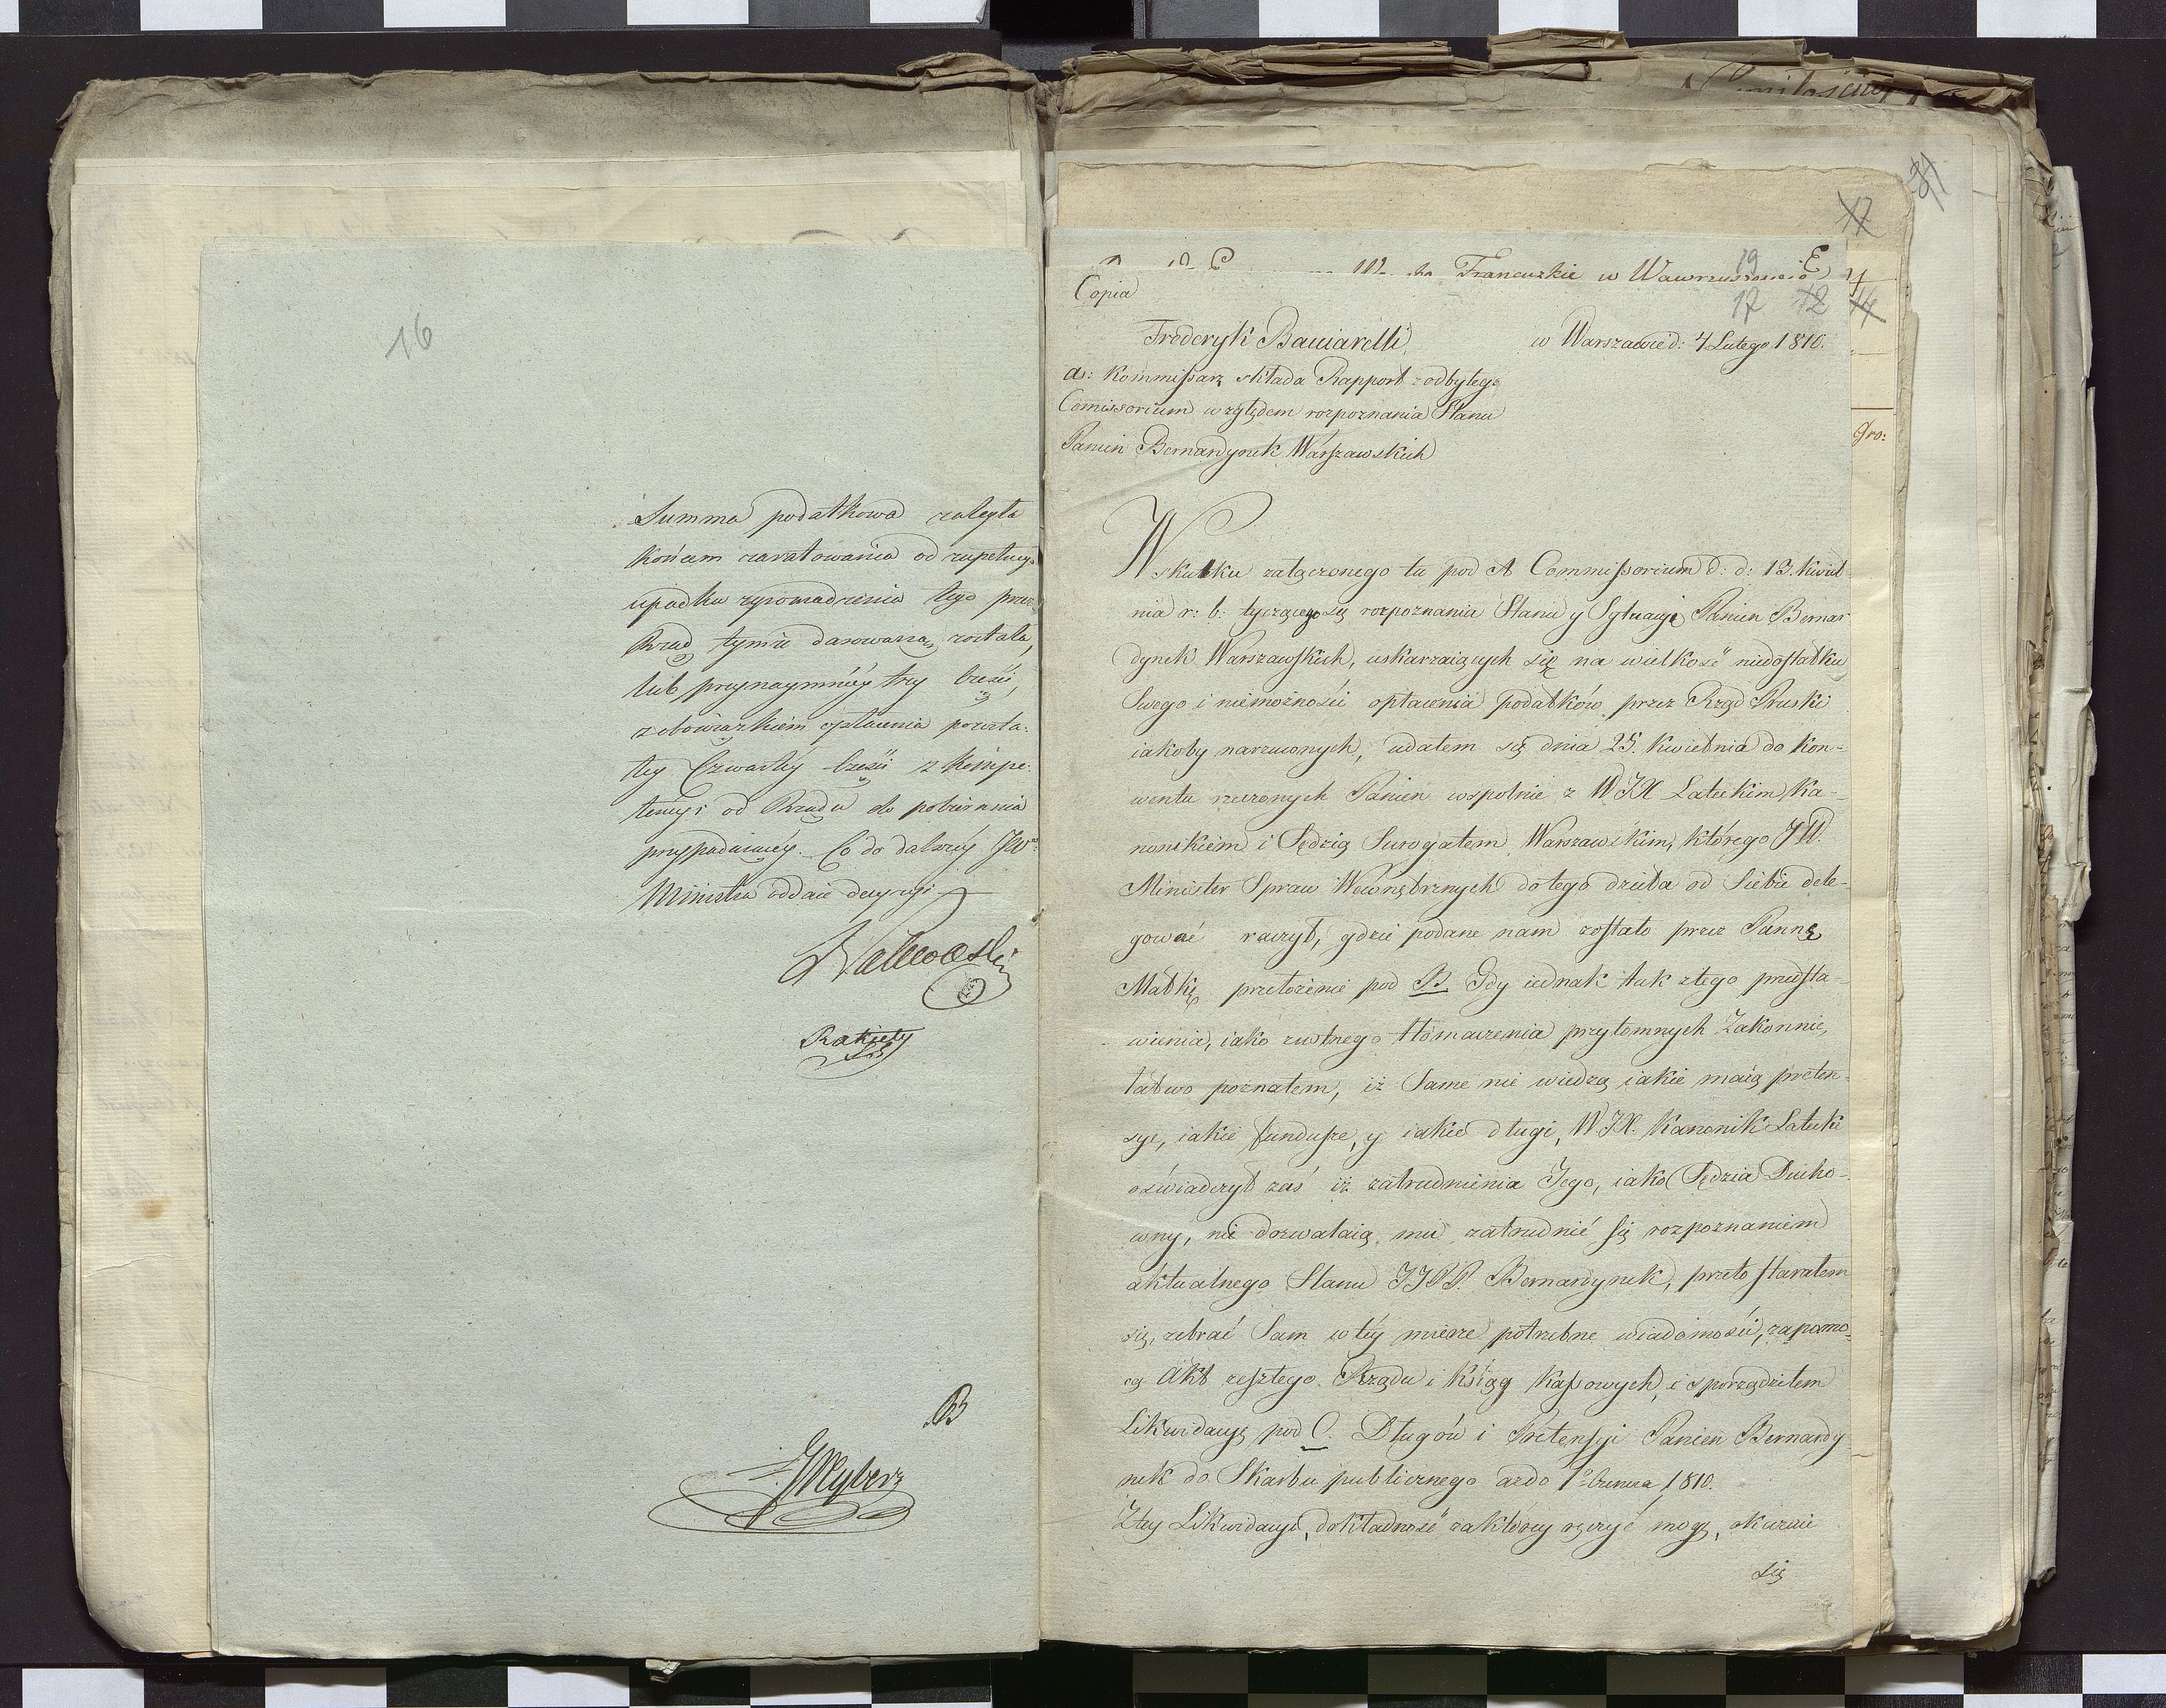 16
Summa podatkowa zaległa
końcem zaratowania od zupełnego
upadku zgromadzenia tego przez
Rząd tymże darowana została,
lub przynaymniéy trzy części,
z obowiązkiem opłacenia pozosta-
łéy czwartéy części z kompe-
tencyi od Rządu do pobierania
przypadaiącéy. Co do dalszéy JWo
Ministra oddaie decyzyi
Rakiety
B
JWyberz
17
Francuzkie w
E
Copia
19
17 12 14
Frederyk Bacciarelli,
w Warszawie d: 4 Lutego 1810.
as: Kommissarz składa Rapport z odbytego
Comissorium względem rozpoznania Stanu
Panien Bernardynek Warszawskich
Gro:
W skutku załączonego tu pod A Commissorium d: d: 13. kwiet
nia r: b: tyczącego się rozpoznania Stanu y Sytuacyi Panien Bernar
dynek Warszawskich, uskarzaiących się na wielkość niedostatku
Swego i niemożności opłacenia podatków przez Rząd Pruski
iakoby narzuconych, udałem się dnia 25. Kwietnia do Kon-
wentu rzeczonych Panien wspolnie z WJX Lateckim Ka-
nonikiem i Sędzią Surogatem Warszawskim, którego JW.
Minister Spraw Wewnętrznych do tego dzieła od Siebie dele-
gować raczył, gdzie podane nam zostało przez Pannę
Matkę przełożenie pod B. Gdy iednak tak z tego przedsta-
wienia, iako zustnego tłómaczenia przytomnych Zakonnic,
łatwo poznałem, iż Same nie wiedzą iakie maią preten-
sye, iakie fundusze, y iakie długi, WJX. Kanonik Latecki
oświadczył zaś iż zatrudnienia Jego, iako Sędzia Ducho-
wny, nie dozwalaią mu zatrudnić się rozpoznaniem
aktualnego Stanu JJPP. Bernardynek, przeto starałem
się, zebrać Sam w téy mierze potrzebne wiadomości, za pomo-
cą Akt zeszłego Rządu i Ksiąg Kassowych, i sporządziłem
Likwidacyę pod C. Długów i Pretensyi Panien Bernardy
nek do Skarbu publicznego az do 1o Czerwca 1810.
Z tey Likwidacyi, dokładność za któréy ręczyć mogę, okazuie
się